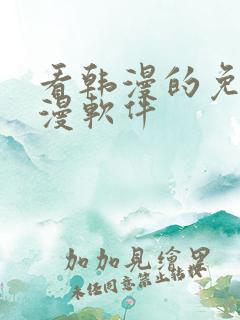 看韩漫的免
漫软件
加加見繪畧
未任同意禁止转译